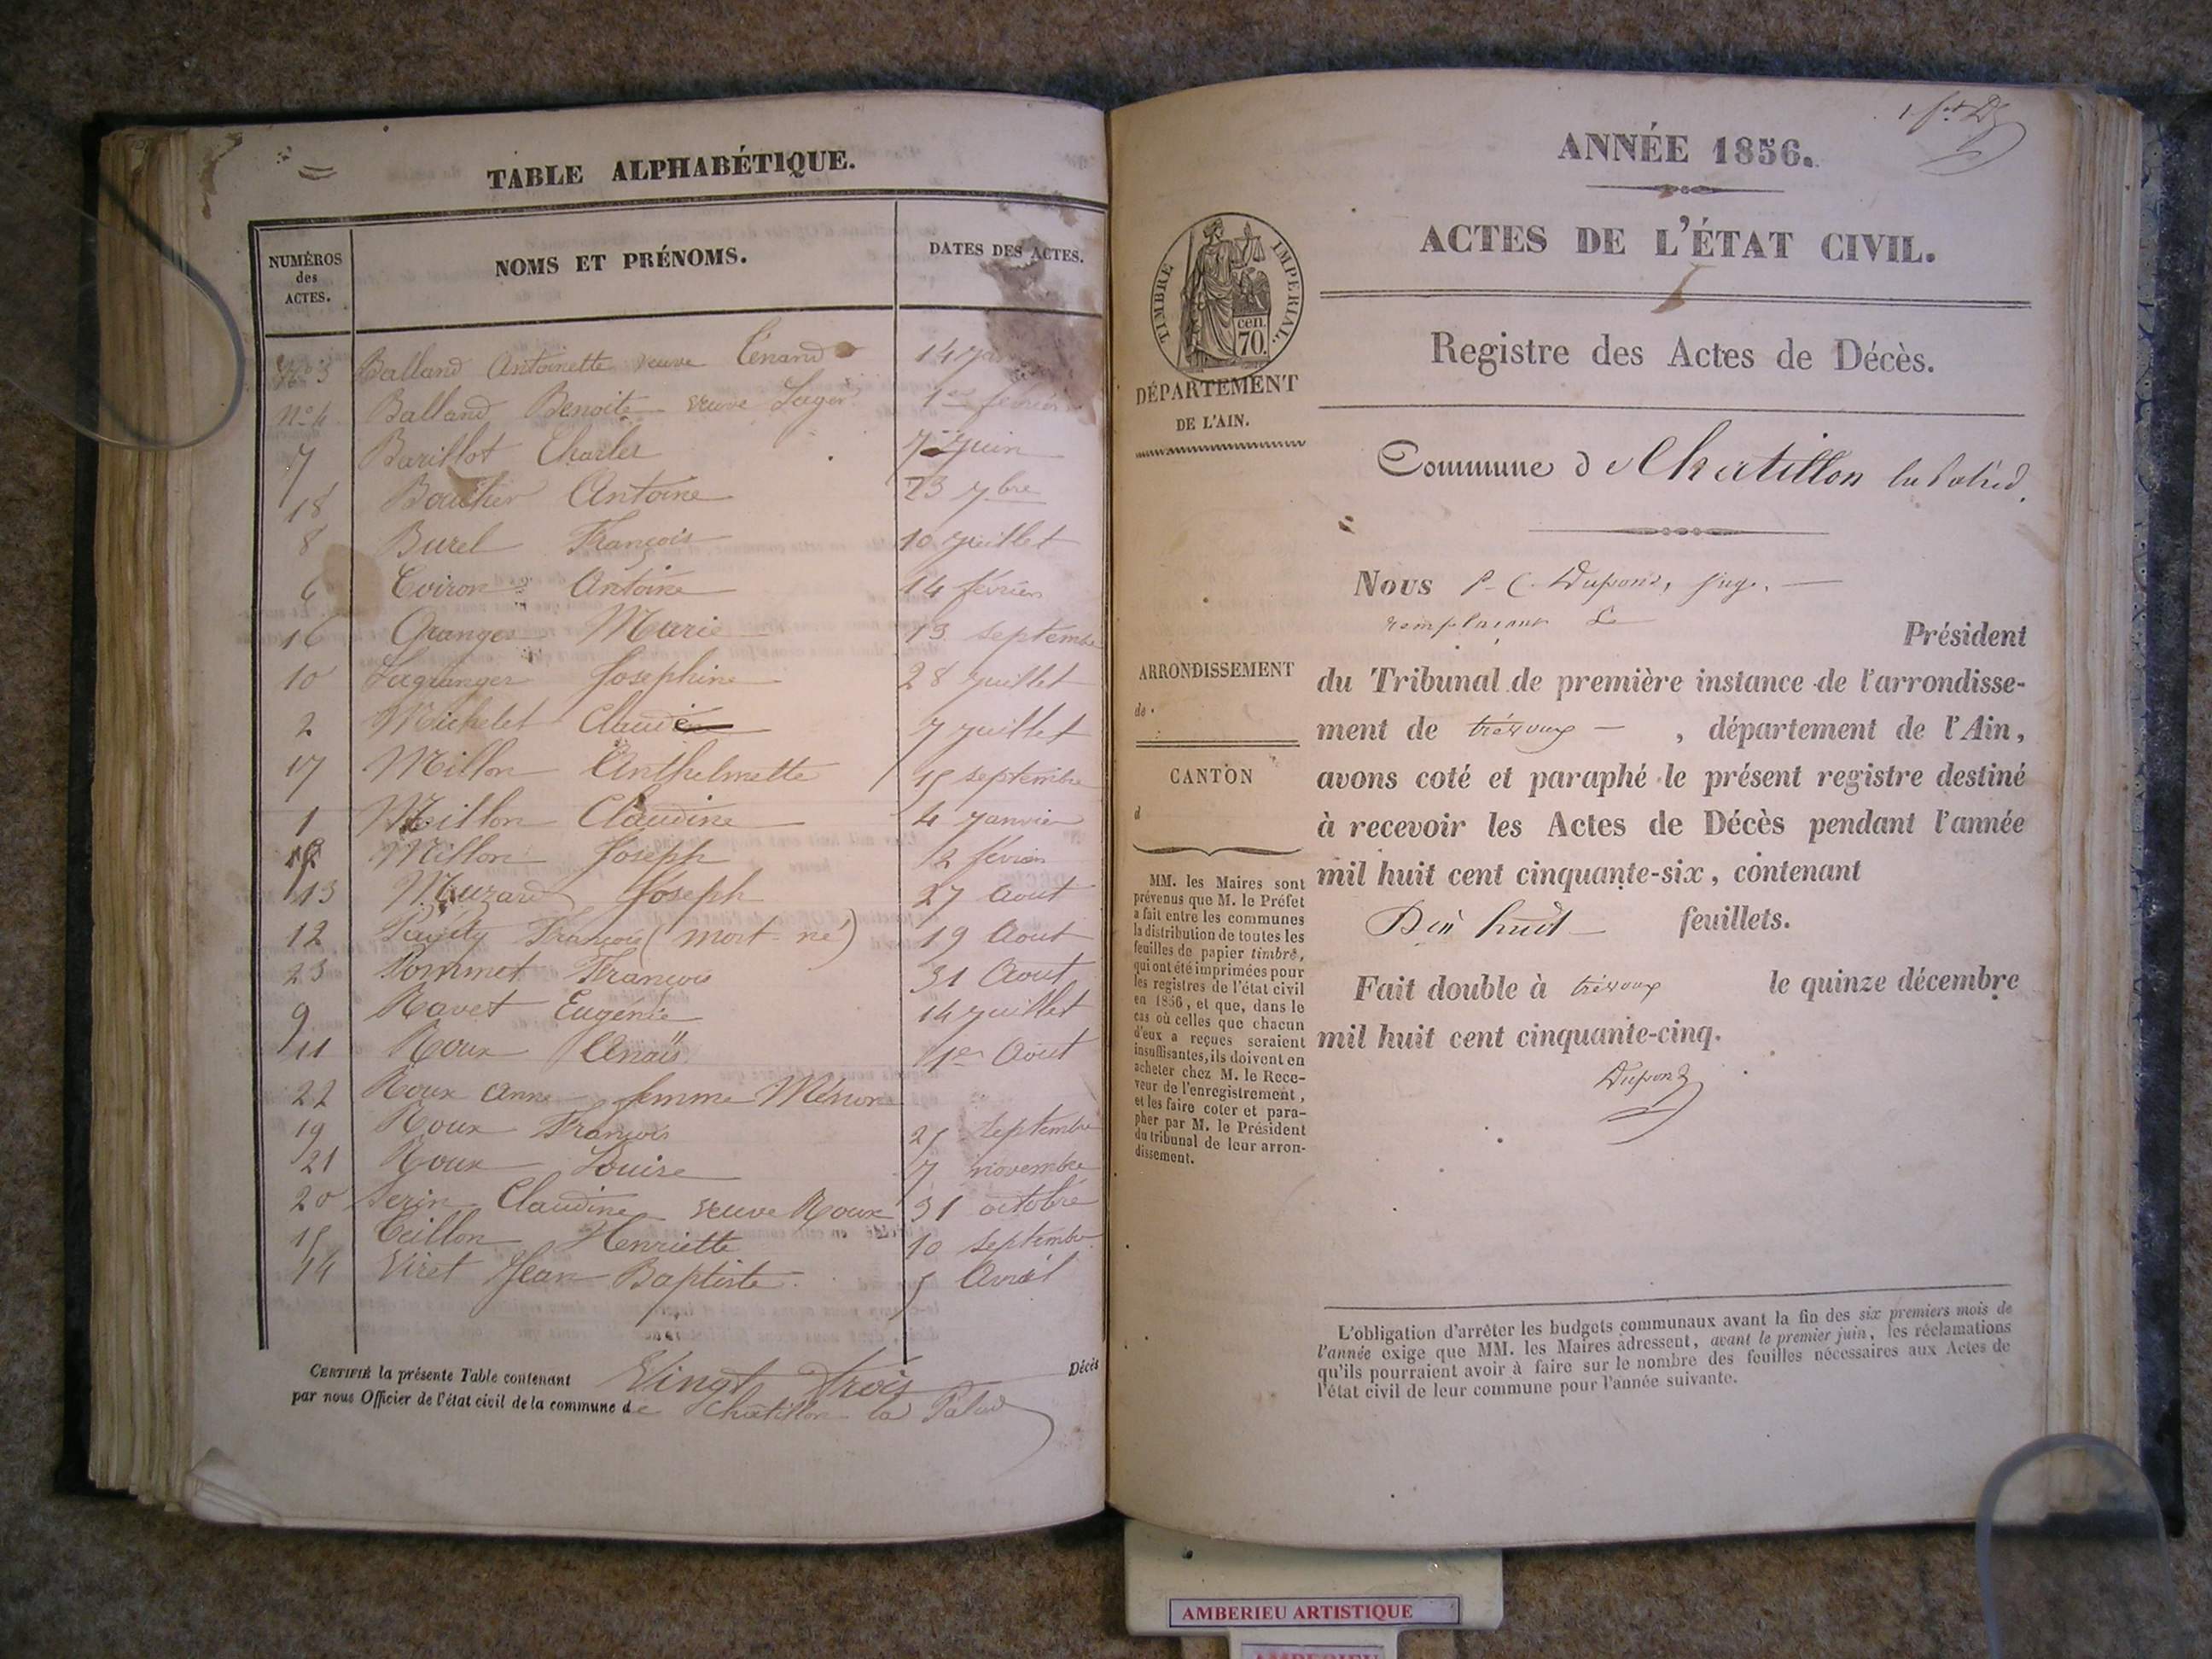 TABLE ALPHABÉTIQUE.
NUMÉROS des ACTES. NOMS ET PRÉNOMS. DATES DES ACTES.
N° 3 Balland Antoinette veuve Tenand 14
N° 4 Balland Benoite veuve Lager 1er février
7 Barillot Charles 7 juin
18 Boucher Antoine 23 7bre
8 Burel François 10 juillet
6 Antoine 14 février
16 Granger Marie 13 septembre
10 Lagranger Josephine 28 juillet
2 Michelet 7 juillet
17 Millon Anthelmette 15 septembre
1 Millon Claudine 4 janvier
Millon Joseph 12 février
13 Muzard Joseph 27 Aout
12 François (mort-né) 19 Aout
23 Pommet François 31 Aout
9 Ravet Eugénie 14 juillet
11 Roux Anaïs 1er Aout
22 Roux Anne femme
19 Roux François 25 septembre
21 Roux Louise 7 novembre
20 Serin Claudine veuve Roux 31 octobre
15 Teillon Henriette 10 septembre
14 Viret Jean Baptiste 5 Avril
CERTIFIÉ la présente Table contenant Vingt trois Décès
par nous Officier de l'état civil de la commune de Chatillon la Palud
ANNÉE 1856.
ACTES DE L'ÉTAT CIVIL.
TIMBRE IMPERIAL.
70 cen.
DÉPARTEMENT
DE L'AIN.
Registre des Actes de Décès.
Commune de Chatillon la Palud.
Nous P. C. Dupond, juge,
remplaçant Le
Président
du Tribunal de première instance de l'arrondisse-
ment de trévoux, département de l'Ain,
avons coté et paraphé le présent registre destiné
à recevoir les Actes de Décès pendant l'année
mil huit cent cinquante-six, contenant
Dix huit feuillets.
Fait double à trévoux le quinze décembre
mil huit cent cinquante-cinq.
Dupond
ARRONDISSEMENT
de
CANTON
d
MM. les Maires sont
prévenus que M. le Préfet
a fait entre les communes
la distribution de toutes les
feuilles de papier timbré,
qui ont été imprimées pour
les registres de l'état civil
en 1856, et que, dans le
cas où celles que chacun
d'eux a reçues seraient
insuffisantes, ils doivent en
acheter chez M. le Rece-
veur de l'enregistrement,
et les faire coter et para-
pher par M. le Président
du tribunal de leur arron-
dissement.
L'obligation d'arrêter les budgets communaux avant la fin des six premiers mois de
l'année exige que MM. les Maires adressent, avant le premier juin, les réclamations
qu'ils pourraient avoir à faire sur le nombre des feuilles nécessaires aux Actes de
l'état civil de leur commune pour l'année suivante.
AMBERIEU ARTISTIQUE
AMBERIEU